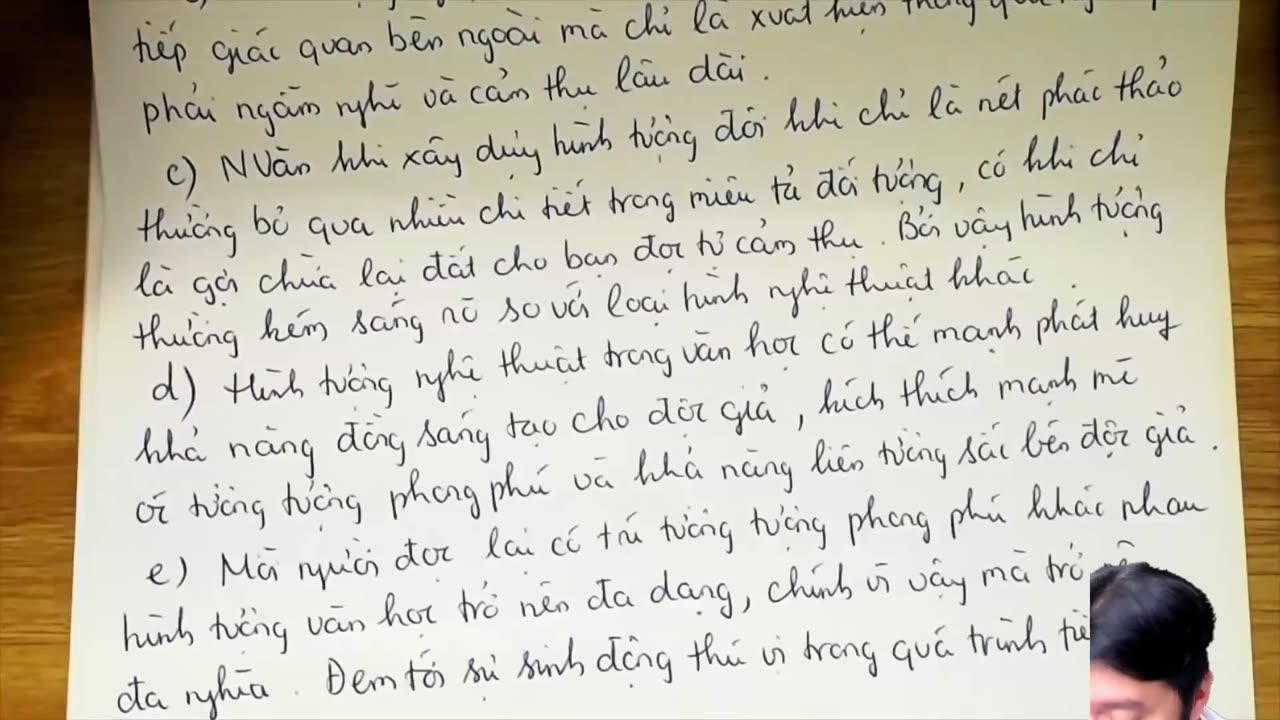 tiếp giác quan bên ngoài mà chỉ là xuất hiện thông qua
phải ngẫm nghĩ và cảm thụ lâu dài.
c) NVăn khi xây dựng hình tượng đôi khi chỉ là nét phác thảo
thường bỏ qua nhiều chi tiết trong miêu tả đối tượng, có khi chỉ
là gợi chừa lại đất cho bạn đọc tự cảm thụ. Bởi vậy hình tượng
thường kém sáng rõ so với loại hình nghệ thuật khác.
d) Hình tượng nghệ thuật trong văn học có thế mạnh phát huy
khả năng đồng sáng tạo cho độc giả, kích thích mạnh mẽ
óc tưởng tượng phong phú và khả năng liên tưởng sắc bén độc giả.
e) Mỗi người đọc lại có trí tưởng tượng phong phú khác nhau
hình tượng văn học trở nên đa dạng, chính vì vậy mà trở
đa nghĩa. Đem tới sự sinh động thú vị trong quá trình